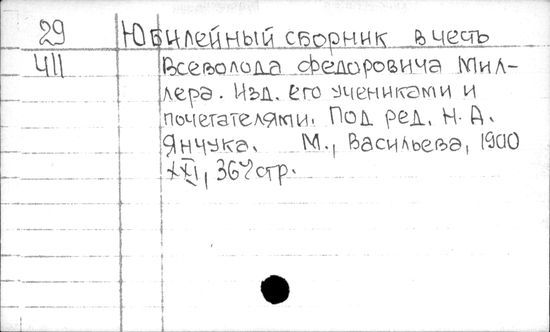 29 Юбилейный сборник в честь
Ч11 Всеволода Федоровича Мил-
лера. Изд. его учениками и
почетателями. Под ред. Н. А.
Янчука. М., Васильева, 1900
XXI, 367 стр.